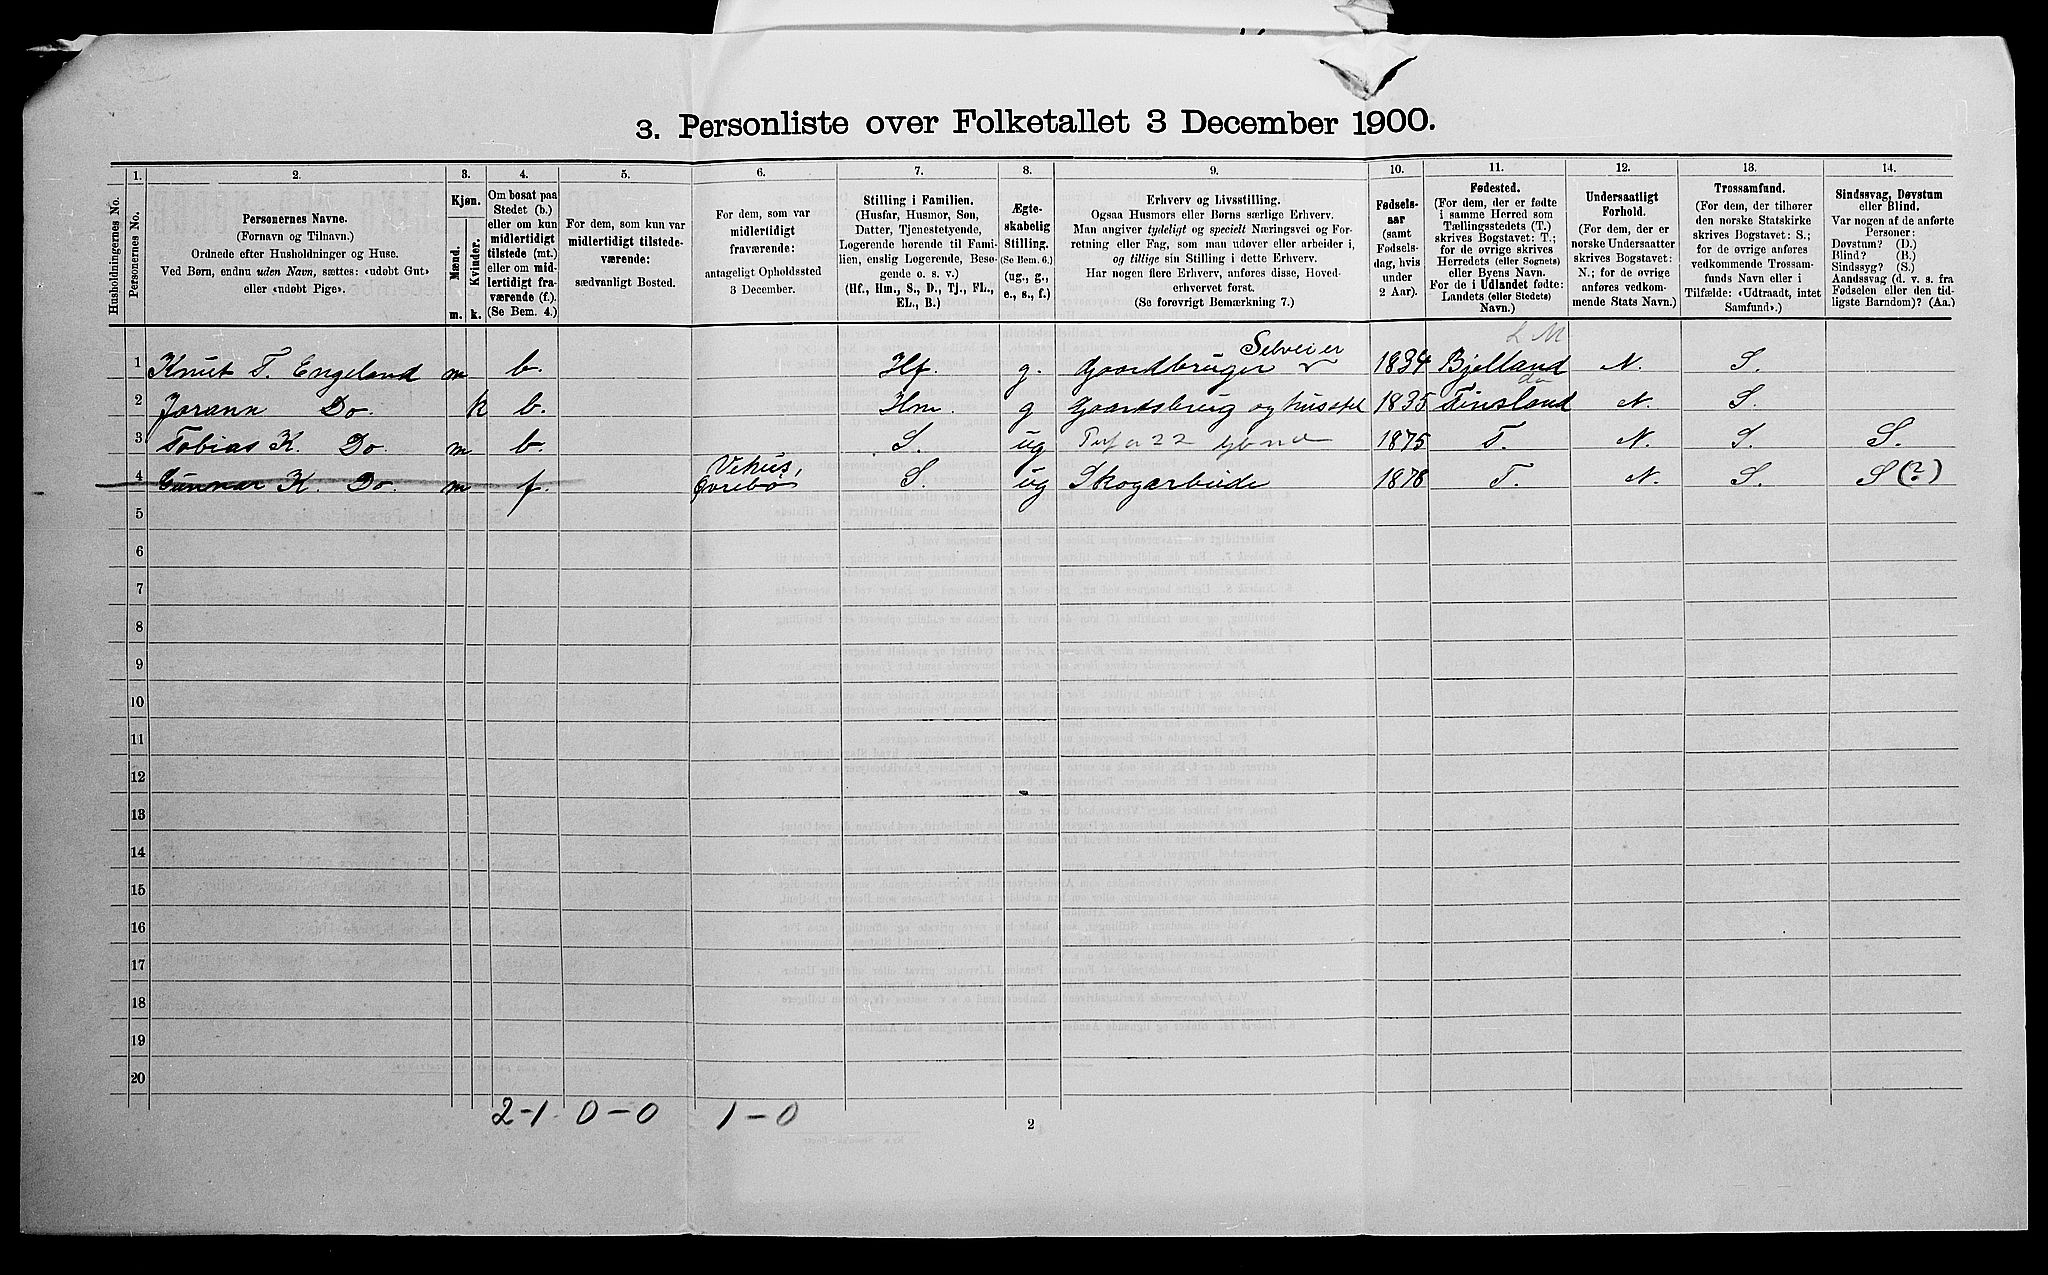 3. Personliste over Folketallet 3 December 1900.
Husholdningernes No.
1. Personernes No.
2. Personernes Navne. (Fornavn og Tilnavn.) Ordnede efter Husholdninger og Huse. Ved Børn, endnu uden Navn, sættes: «udøbt Gut» eller «udøbt Pige».
3. Kjøn. Mænd. m. Kvinder. k.
4. Om bosat paa Stedet (b.) eller om kun midlertidigt tilstede (mt.) eller om midlertidigt fraværende (f.) (Se Bem. 4.)
5. For dem, som kun var midlertidigt tilstedeværende: sædvanligt Bosted.
6. For dem, som var midlertidigt fraværende: antageligt Opholdssted 3 December.
7. Stilling i Familien. (Husfar, Husmor, Søn, Datter, Tjenestetyende, Logerende hørende til Familien, enslig Logerende, Besøgende o. s. v.) (Hf., Hm., S., D., Tj., FL., EL., B.)
8. Ægteskabelig Stilling. (Se Bem. 6.) (ug., g., e., s., f.)
9. Erhverv og Livsstilling. Ogsaa Husmors eller Børns særlige Erhverv. Man angiver tydeligt og specielt Næringsvei og Forretning eller Fag, som man udøver eller arbeider i, og tillige sin Stilling i dette Erhverv. Har nogen flere Erhverv, anføres disse, Hovederhvervet først. (Se forøvrigt Bemærkning 7.)
10. Fødselsaar (samt Fødselsdag, hvis under 2 Aar).
11. Fødested. (For dem, der er fødte i samme Herred som Tællingsstedets (T.) skrives Bogstavet: T.; for de øvrige skrives Herredets (eller Sognets) eller Byens Navn. For de i Udlandet fødte: Landets (eller Stedets) Navn.)
12. Undersaatligt Forhold. (For dem, der er norske Undersaatter skrives Bogstavet: N.; for de øvrige anføres vedkommende Stats Navn.)
13. Trossamfund. (For dem, der tilhører den norske Statskirke skrives Bogstavet: S.; for de øvrige anføres vedkommende Trossamfunds Navn eller i Tilfælde: «Udtraadt, intet Samfund».)
14. Sindssvag, Døvstum eller Blind. Var nogen af de anførte Personer: Døvstum? (D.) Blind? (B.) Sindssyg? (S.) Aandssvag (d. v. s. fra Fødselen eller den tidligste Barndom)? (Aa.)
Selveier L M
1 Knut T. Engeland m b. Hf. g. Gaardbruger 1834 Bjelland N. S.
do
2 Jorann Do. k b. Hm. g Gaardsbrug og husstel 1835 Finsland N. S.
3 Tobias K. Do. m b. S. ug 1875 T. N. S. S.
Vehus,
4 Gunnar K. Do m f. Øvrebø S. ug Skogarbeide 1878 T. N. S. S(?)
5
6
7
8
9
10
11
12
13
14
15
16
17
18
19
20
2-1 0-0 1-0
2